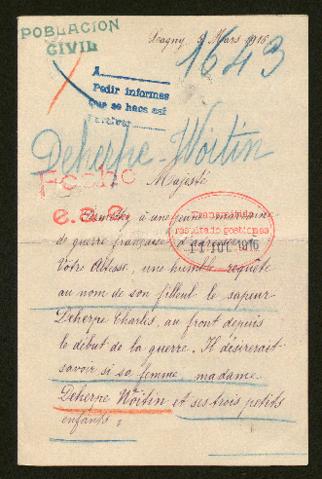 POBLACION
CIVIL
9 Mars 1916
1643
A
Pedir informes
Que se hace así
Deherpe-Woitin
Fecho
Majesté
e.a.2
Permettez à une jeune marraine
resultado gestiones
de guerre française d'adresser à
11 JUL 1916
Votre Altesse, une humble requête
au nom de son filleul le sapeur
Deherpe Charles, au front depuis
le début de la guerre. Il désirerait
savoir si sa femme, madame
Deherpe Woitin et ses trois petits
enfants,